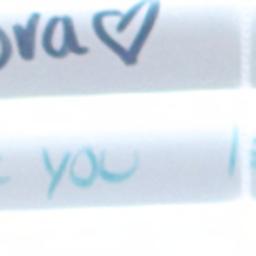 ora ♡
you